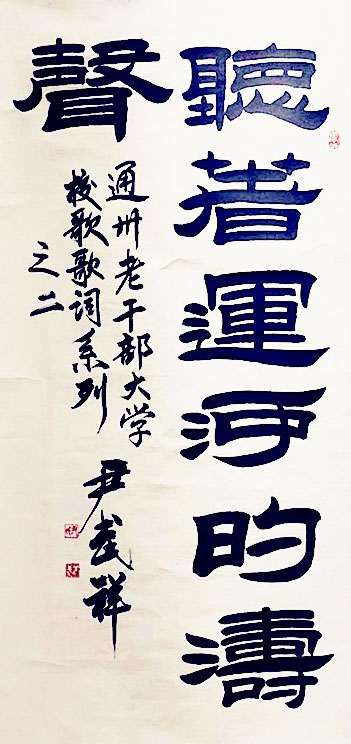 聽着運河的濤
聲
通州老干部大学
校歌歌词系列
之二
尹武祥